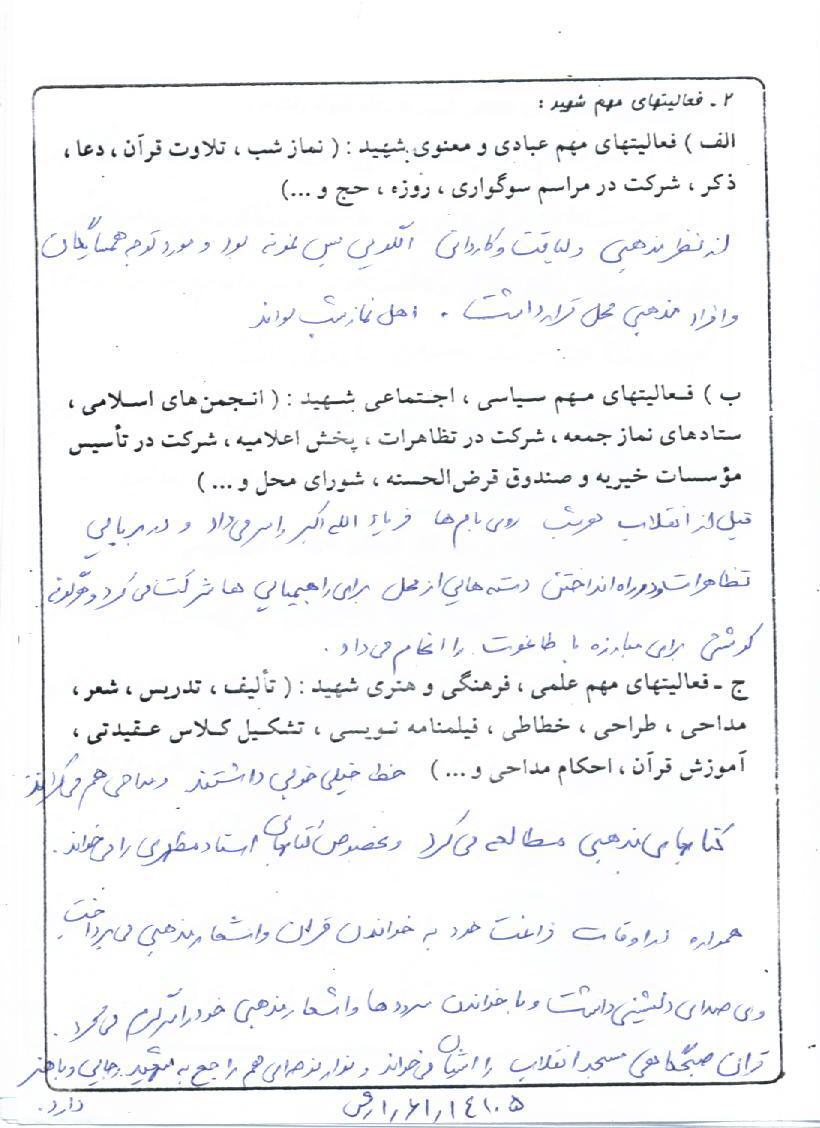 ۲ ـ فعالیتهای مهم شهید :
الف ) فعالیتهای مهم عبادی و معنوی شهید : ( نماز شب ، تلاوت قرآن ، دعا ،
ذکر ، شرکت در مراسم سوگواری ، روزه ، حج و ...)
از نظر مذهبی و لیاقت و کاردانی الگویی بس نمونه بود و مورد توجه همسایگان
و افراد مذهبی محل قرار داشت . اهل نماز شب بودند
ب ) فـعالیتهای مـهم سـیاسی ، اجـتماعی شـهید : ( انـجمن‌های اسـلامی ،
ستادهای نماز جمعه ، شرکت در تظاهرات ، پخش اعلامیه ، شرکت در تأسیس
مؤسسات خیریه و صندوق قرض‌الحسنه ، شورای محل و ... )
قبل از انقلاب هر شب روی بام‌ها فریاد الله اکبر را سر می‌داد و در برپایی
تظاهرات و در راه انداختن دسته هایی از محل برای راهپیمایی ها شرکت می کرد و هرگونه
کوششی برای مبارزه با طاغوت را انجام می‌داد .
ج ـ فعالیتهای مهم علمی ، فرهنگی و هنری شهید : ( تألیف ، تدریس ، شعر ،
مداحی ، طراحی ، خطاطی ، فیلمنامه نـویسی ، تشکـیل کـلاس عـقیدتی ،
آموزش قرآن ، احکام مداحی و ... ) خط خیلی خوبی داشتند و مداحی هم می‌کردند
کتابهای مذهبی مطالعه می‌کرد و بخصوص کتابهای استاد مطهری را می‌خواند .
همواره در اوقات فراغت خود به خواندن قرآن و اشعار مذهبی می‌پرداخت
وی صدای دلنشینی داشت و با خواندن سرودها و اشعار مذهبی خود را سرگرم می‌کرد .
قرآن صبحگاهی مسجد انقلاب را ایشان می‌خواند و نوار نوحه‌ای هم راجع به شهید رجایی و باهنر
دارد .